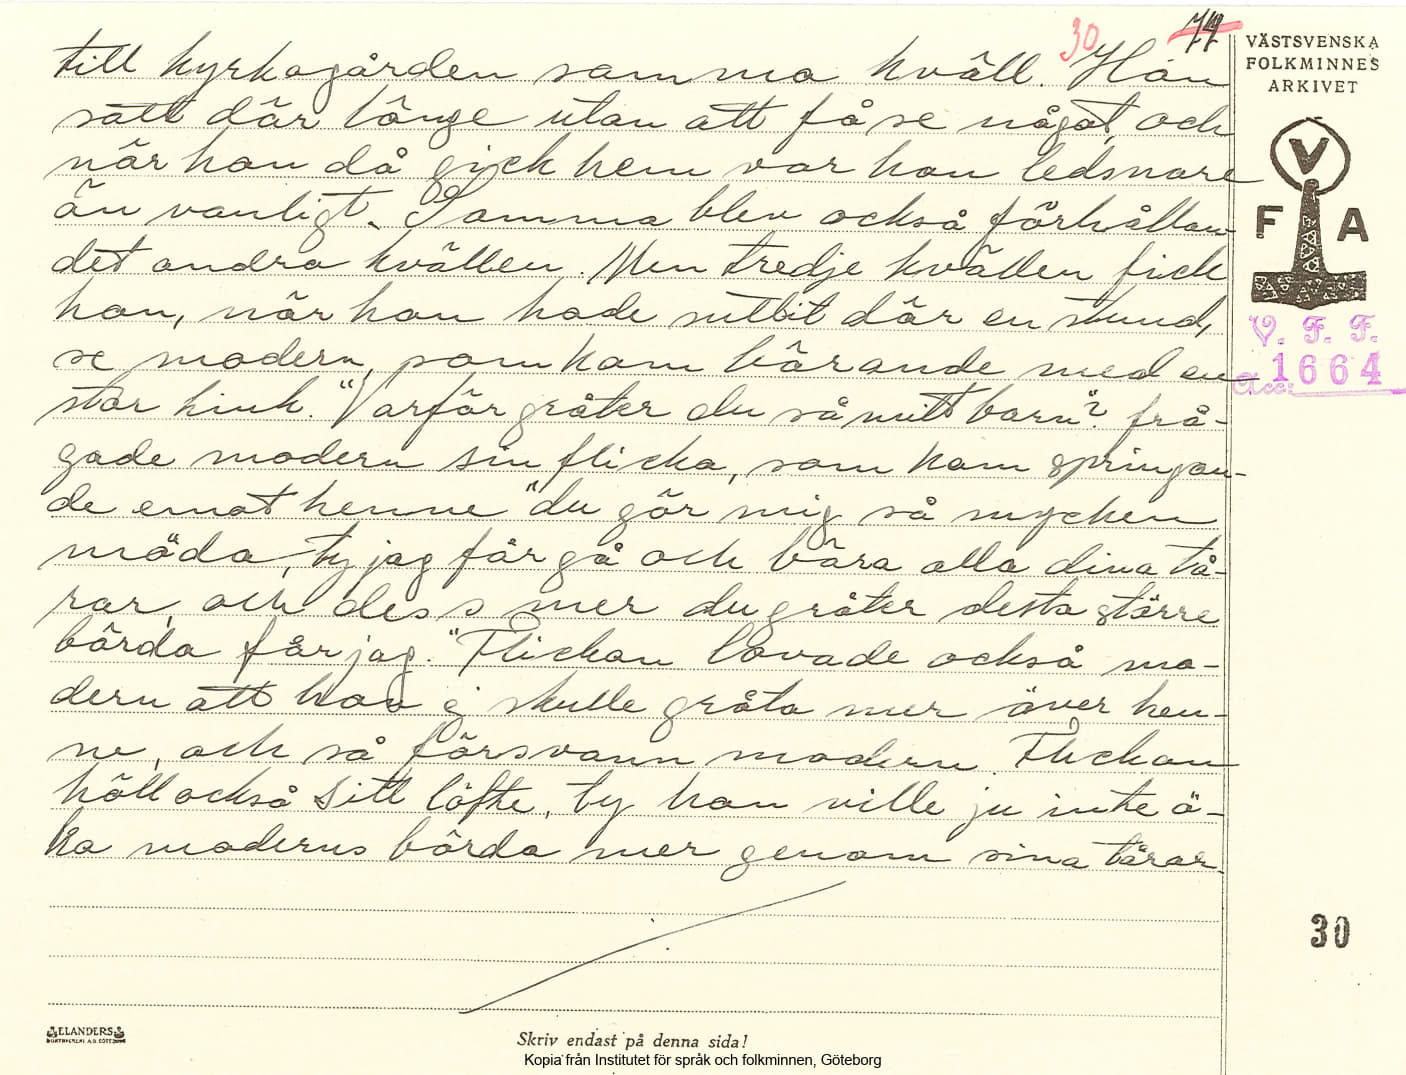 30 74
till kyrkogården samma kväll. Hon
satt där länge utan att få se något, och
när hon då gick hem var hon ledsnare
än vanligt. Samma blev också förhållan-
det andra kvällen. Men tredje kvällen fick
hon, när hon hade suttit där en stund,
se modern, som kom bärande med en
stor hink. "Varför gråter du så mitt barn"? frå-
gade modern sin flicka, som kom springan-
de emot henne "du gör mig så mycken
möda, ty jag får gå och bära alla dina tå-
rar, och dess mer du gråter desto större
börda får jag." Flickan lovade också mo-
dern att hon ej skulle gråta mer över hen-
ne, och så försvann modern. Flickan
höll också sitt löfte, ty hon ville ju inte ö-
ka moderns börda mer genom sina tårar.
VÄSTSVENSKA
FOLKMINNES
ARKIVET
V
F A
V. F. F.
Acc: 1664
30
ELANDERS
Skriv endast på denna sida!
Kopia från Institutet för språk och folkminnen, Göteborg